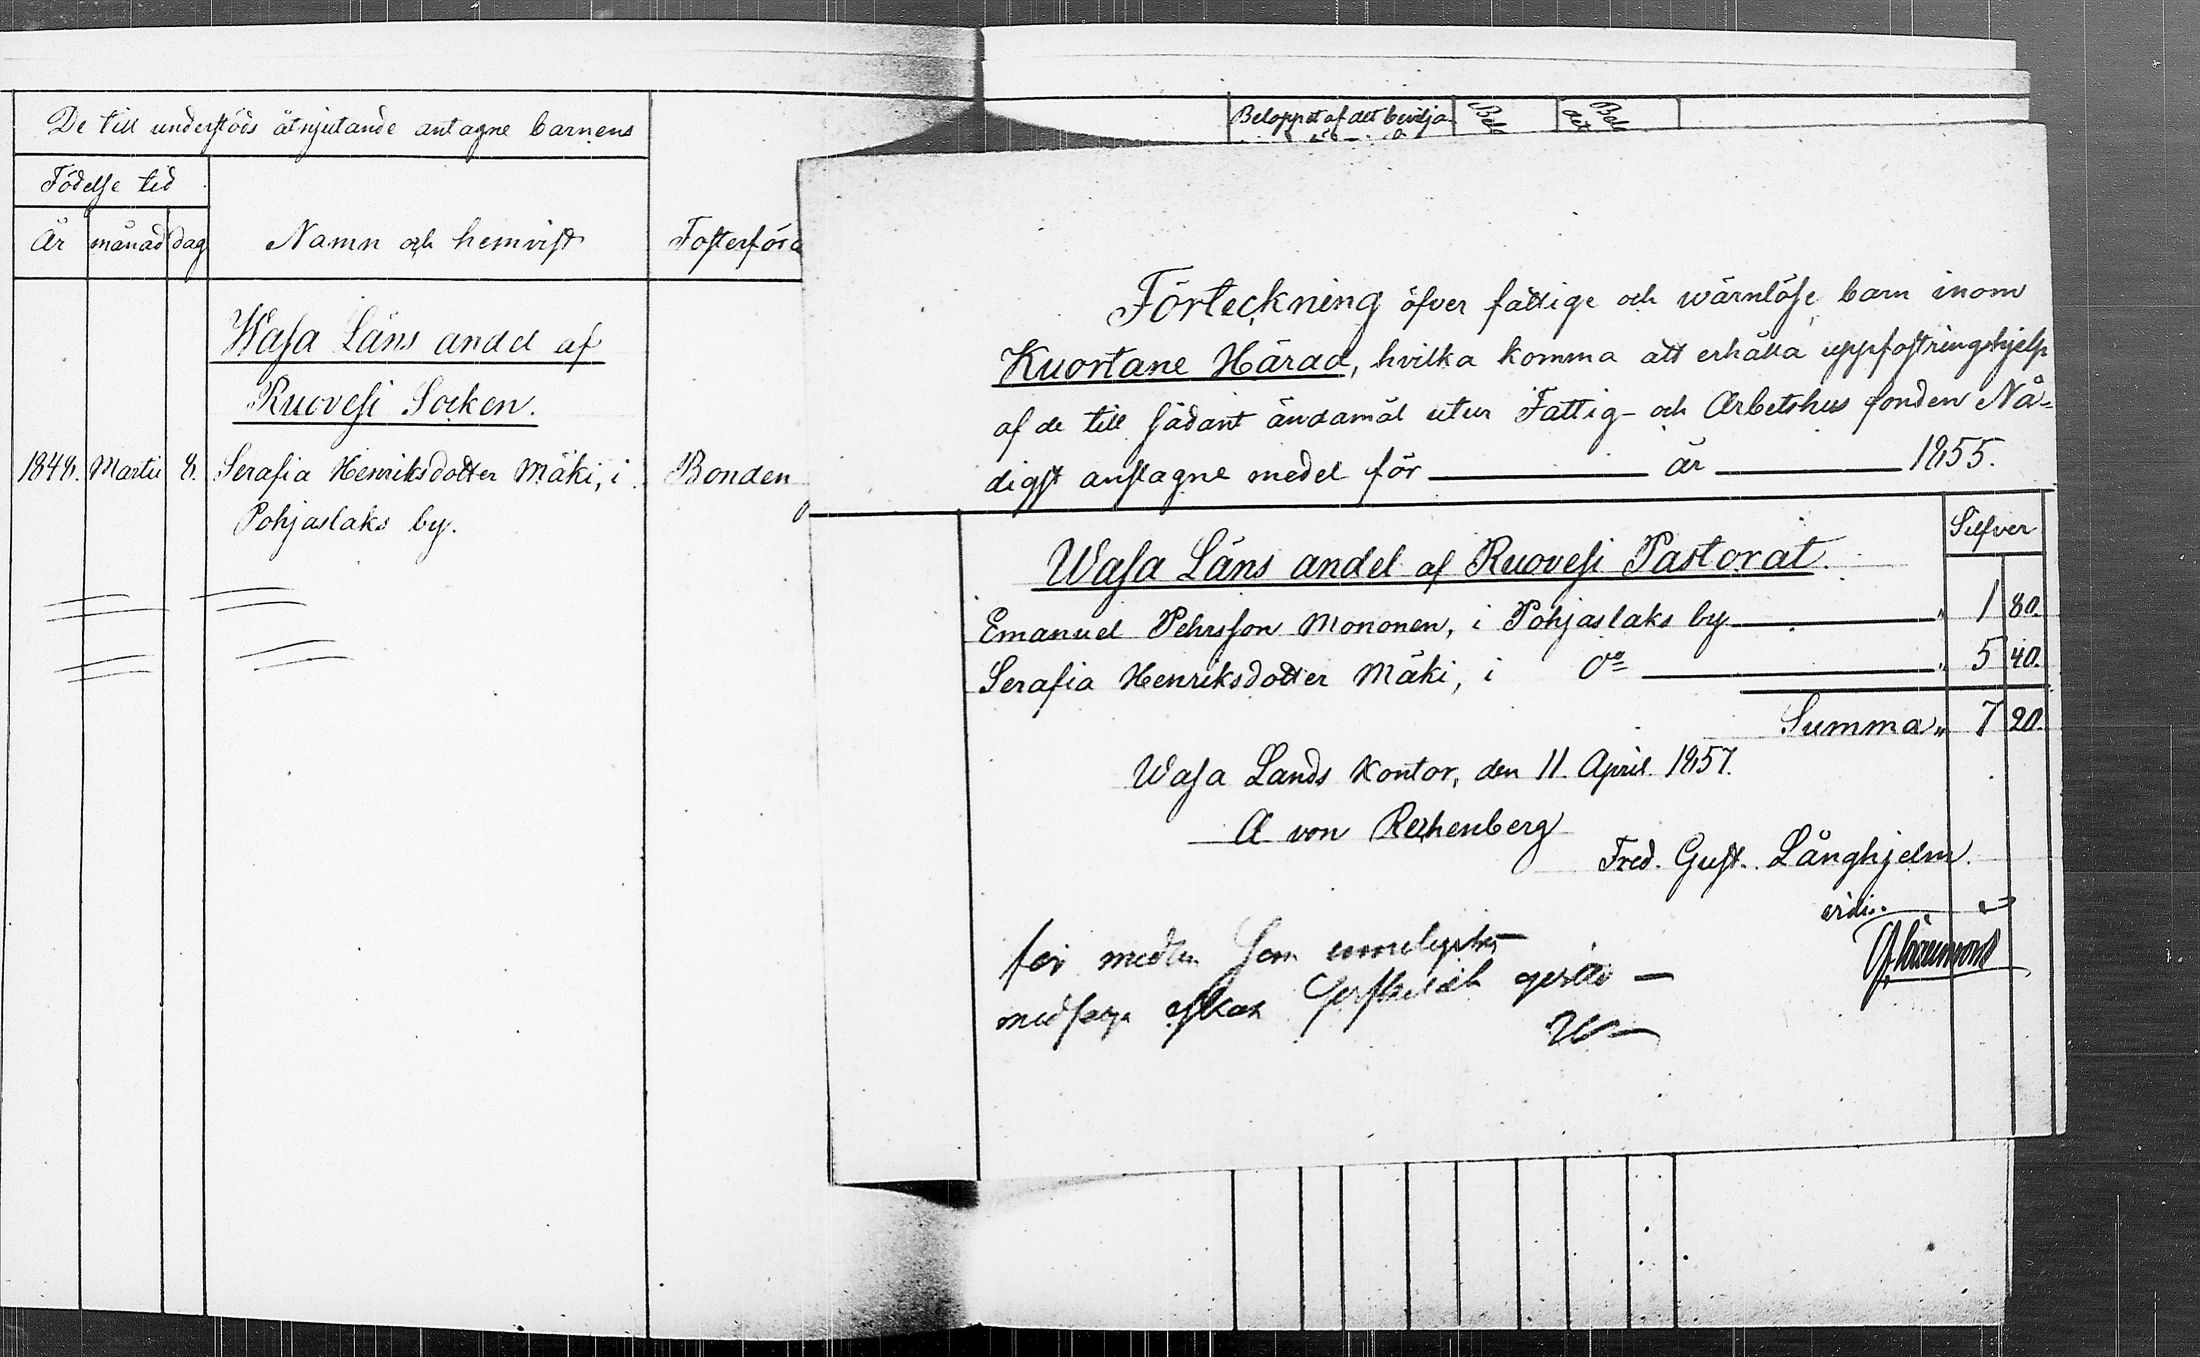 De till understöds åtnjutande antagne barnens
Födelse tid
År månad dag Namn och hemvist Fosterförä
Wasa Läns andel af
Ruovesi Socken.
1848. Martii 8. Serafia Henriksdotter Mäki, i Bonden
Pohjaslaks by.
Beloppet af det bevilja
Förteckning öfver fattige och wärnlöse barn inom
Kuortane Härad, hvilka komma att erhålla uppfostringshjelp
af de till sådant ändamål utur Fattig- och Arbetshus fonden Nå-
digst anslagne medel för år 1855.
Silfver
Wasa Läns andel af Ruovesi Pastorat.
Emanuel Pehrsson Mononen, i Pohjaslaks by " 1 80.
Serafia Henriksdotter Mäki, i do " 5 40.
Summa " 7 20.
Wasa Lands Kontor, den 11 April 1857.
A von Rechenberg
Fred. Gust. Långhjelm.